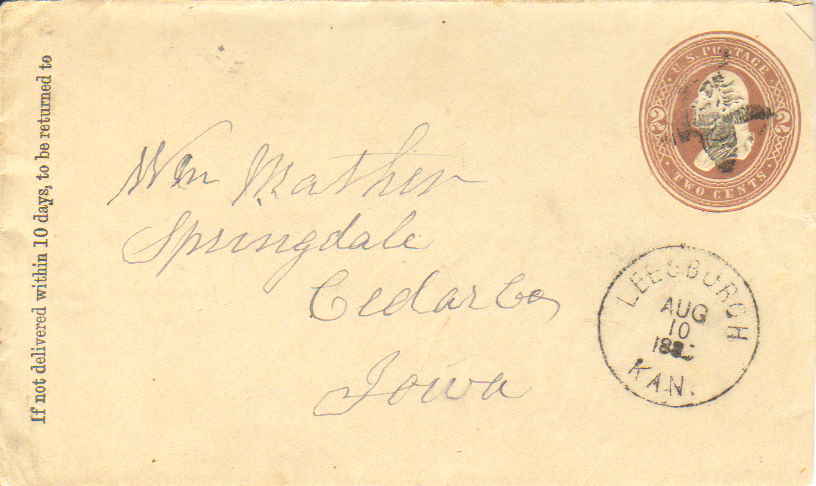 If not delivered within 10 days, to be returned to
U.S. POSTAGE
2 2
TWO CENTS
Wm Mather
Springdale
Cedar Co
Iowa
LEESBURGH
AUG
10
KAN.